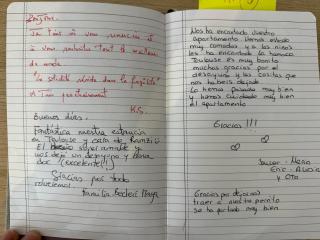 Je tiens à vous remercier et
à vous souhaiter tout le meilleur
du monde.
"La solidité réside dans la fragilité"
K.S.
Buenos días,
fantástica nuestra estancia
en Toulouse y casa de
El super amable y
nos dejó un desayuno y
(excelente!!!)
Gracias por todo
volveremos!
Familia
Nos ha encantado vuestro
apartamento. Hemos estado
muy comodos y a los niños
les ha encantado la hamaca
Toulouse es muy bonito
muchas gracias por el
desayuno y las cositas que
nos habeis dejado.
Lo hemos pasado muy bien
y hemos cuidado muy bien
el apartamento
Gracias!!!
Javier - Maria
Eric - 
y Oto
Gracias por dejarnos
traer a nuestro perrito
se ha portado muy bien